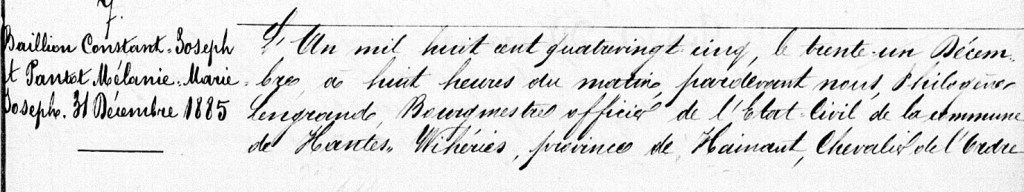 Baillien Constant-Joseph
et Pantot Mélanie-Marie
Joseph. 31 Décembre 1885
L'An mil huit cent quatrevingt cinq, le trente-un Décem-
bre, à huit heures du matin, pardevant nous, Philogène
Lengrand, Bourgmestre officier de l'Etat-Civil de la commune
de Hantes-Wihéries, province de Hainaut, Chevalier de l'Ordre